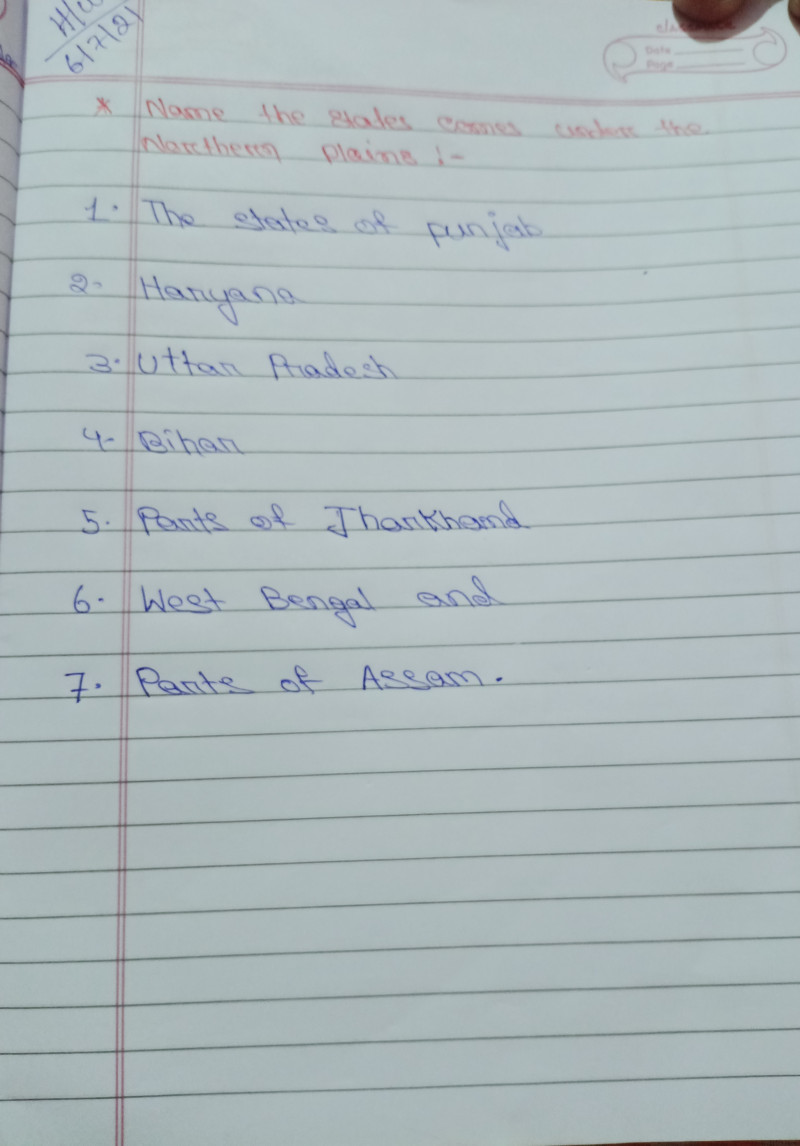 H/W
6/7/21
classmate
Date
Page
* Name the states comes under the
Northern plains :-
1. The states of punjab
2. Haryana
3. Uttar Pradesh
4. Bihar
5. Parts of Jharkhand
6. West Bengal and
7. Parts of Assam.